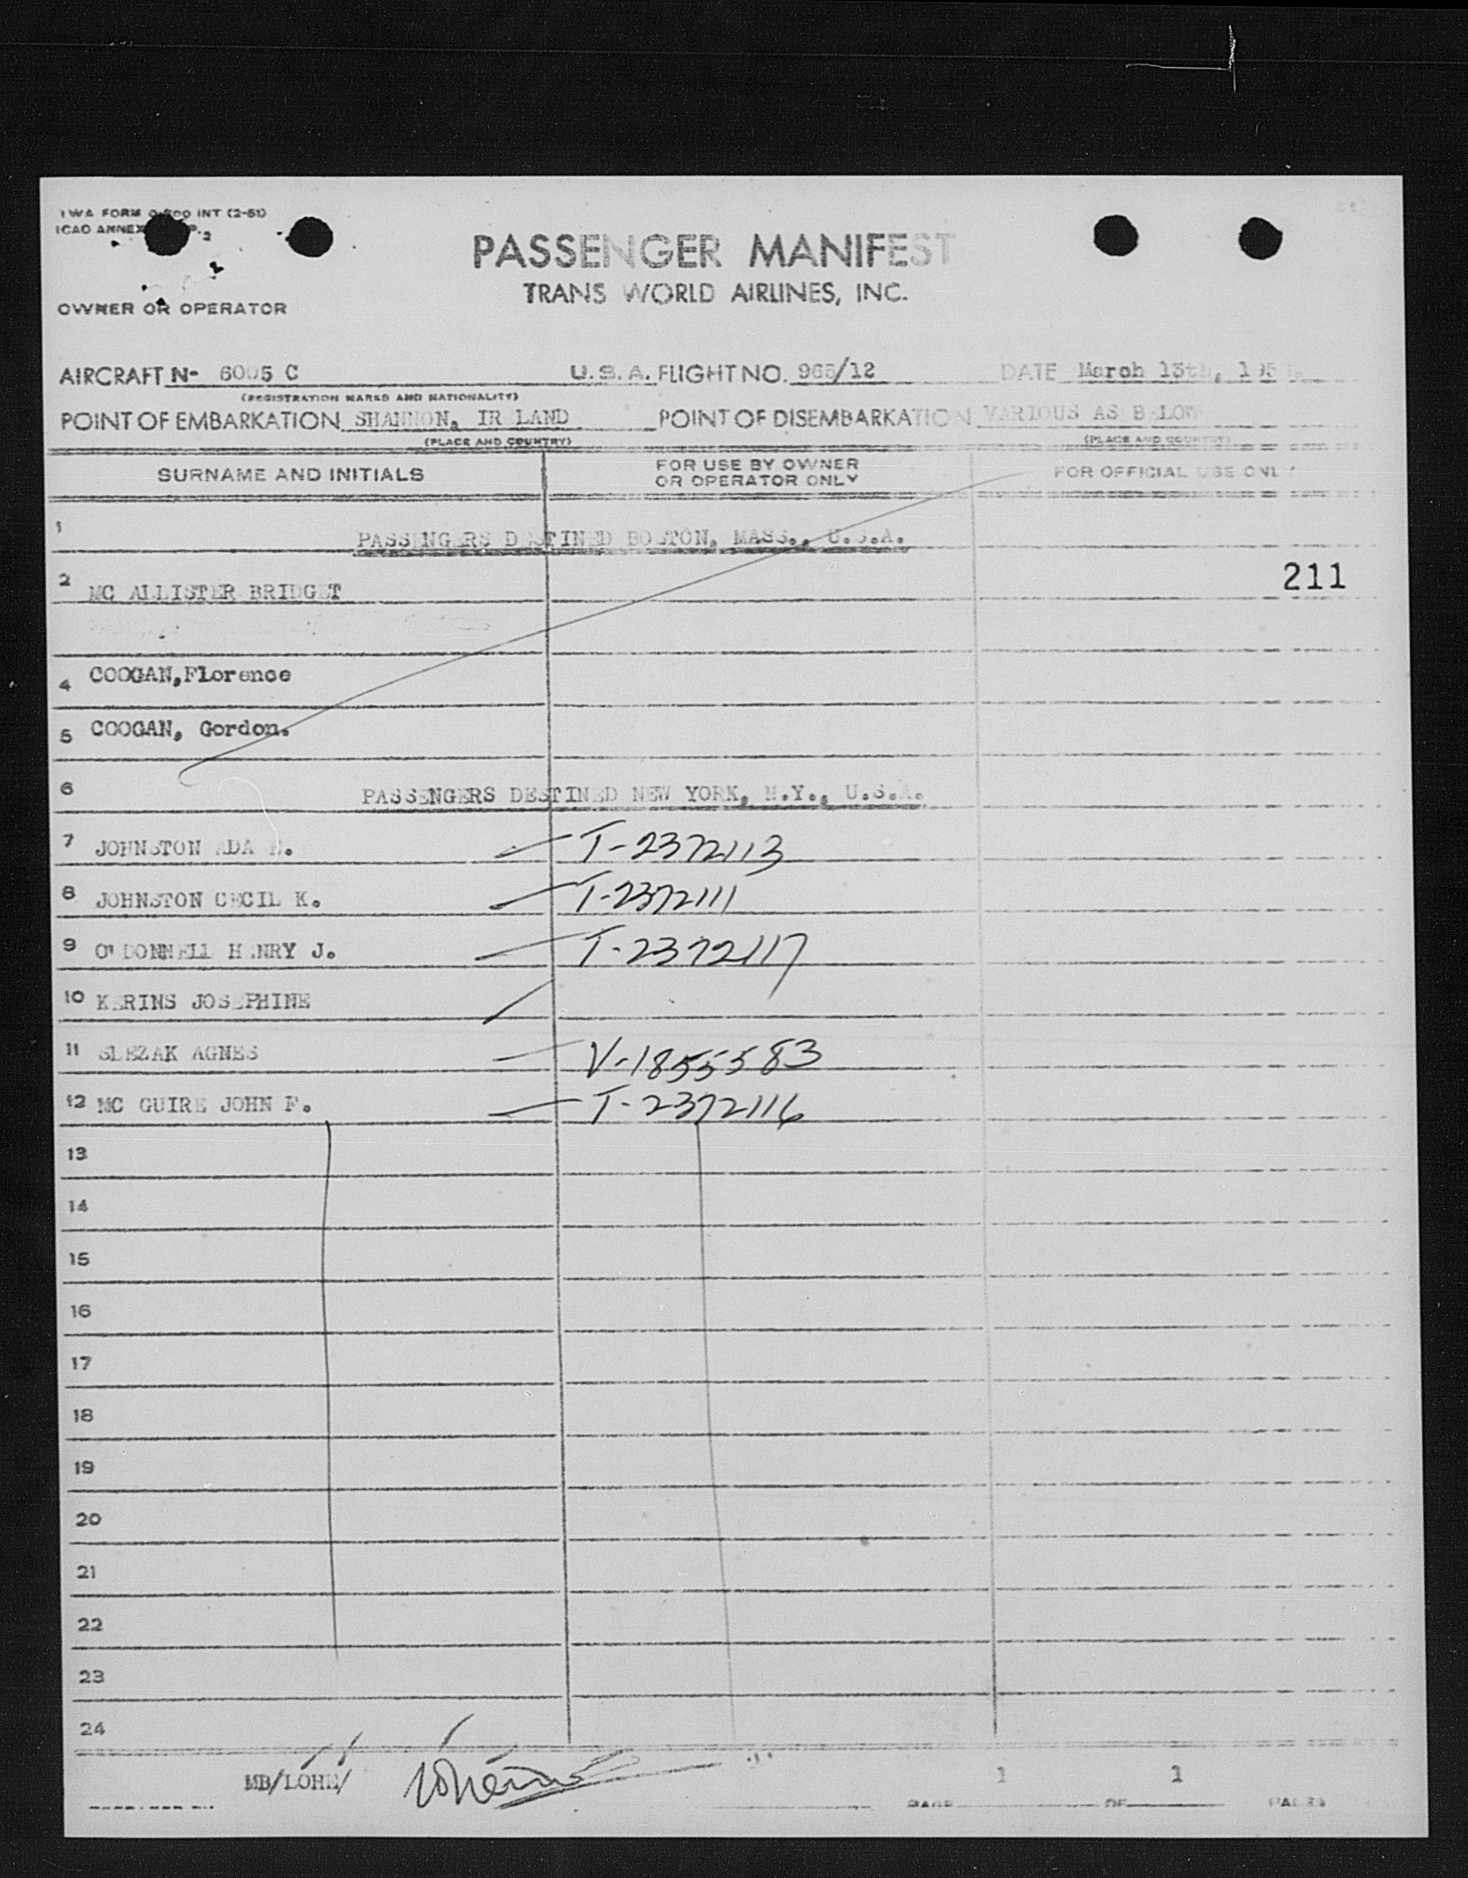 TWA FORM INT (2-51)
ICAO ANNEX 2
PASSENGER MANIFEST
TRANS WORLD AIRLINES, INC.
OWNER OR OPERATOR
AIRCRAFT N- 6005 C U.S.A. FLIGHT NO. 965/12 DATE March 13th,
(REGISTRATION MARKS AND NATIONALITY)
POINT OF EMBARKATION SHANNON, IRELAND POINT OF DISEMBARKATION VARIOUS AS BELOW
(PLACE AND COUNTRY) (PLACE AND COUNTRY)
SURNAME AND INITIALS FOR USE BY OWNER OR OPERATOR ONLY FOR OFFICIAL USE ONLY
1 PASSENGERS DESTINED BOSTON, MASS., U.S.A.
2 MC ALLISTER BRIDGET 211
4 COOGAN,Florence
5 COOGAN, Gordon.
6 PASSENGERS DESTINED NEW YORK, N.Y., U.S.A.
7 JOHNSTON ADA T-2372113
8 JOHNSTON CECIL K. T-2372111
9 O'DONNELL HENRY J. T-2372117
10 KERINS JOSEPHINE
11 SLEZAK AGNES V-1855583
12 MC GUIRE JOHN F. T-2372116
13
14
15
16
17
18
19
20
21
22
23
24
MB/LOHE/ 1 1
PAGE OF PAGES